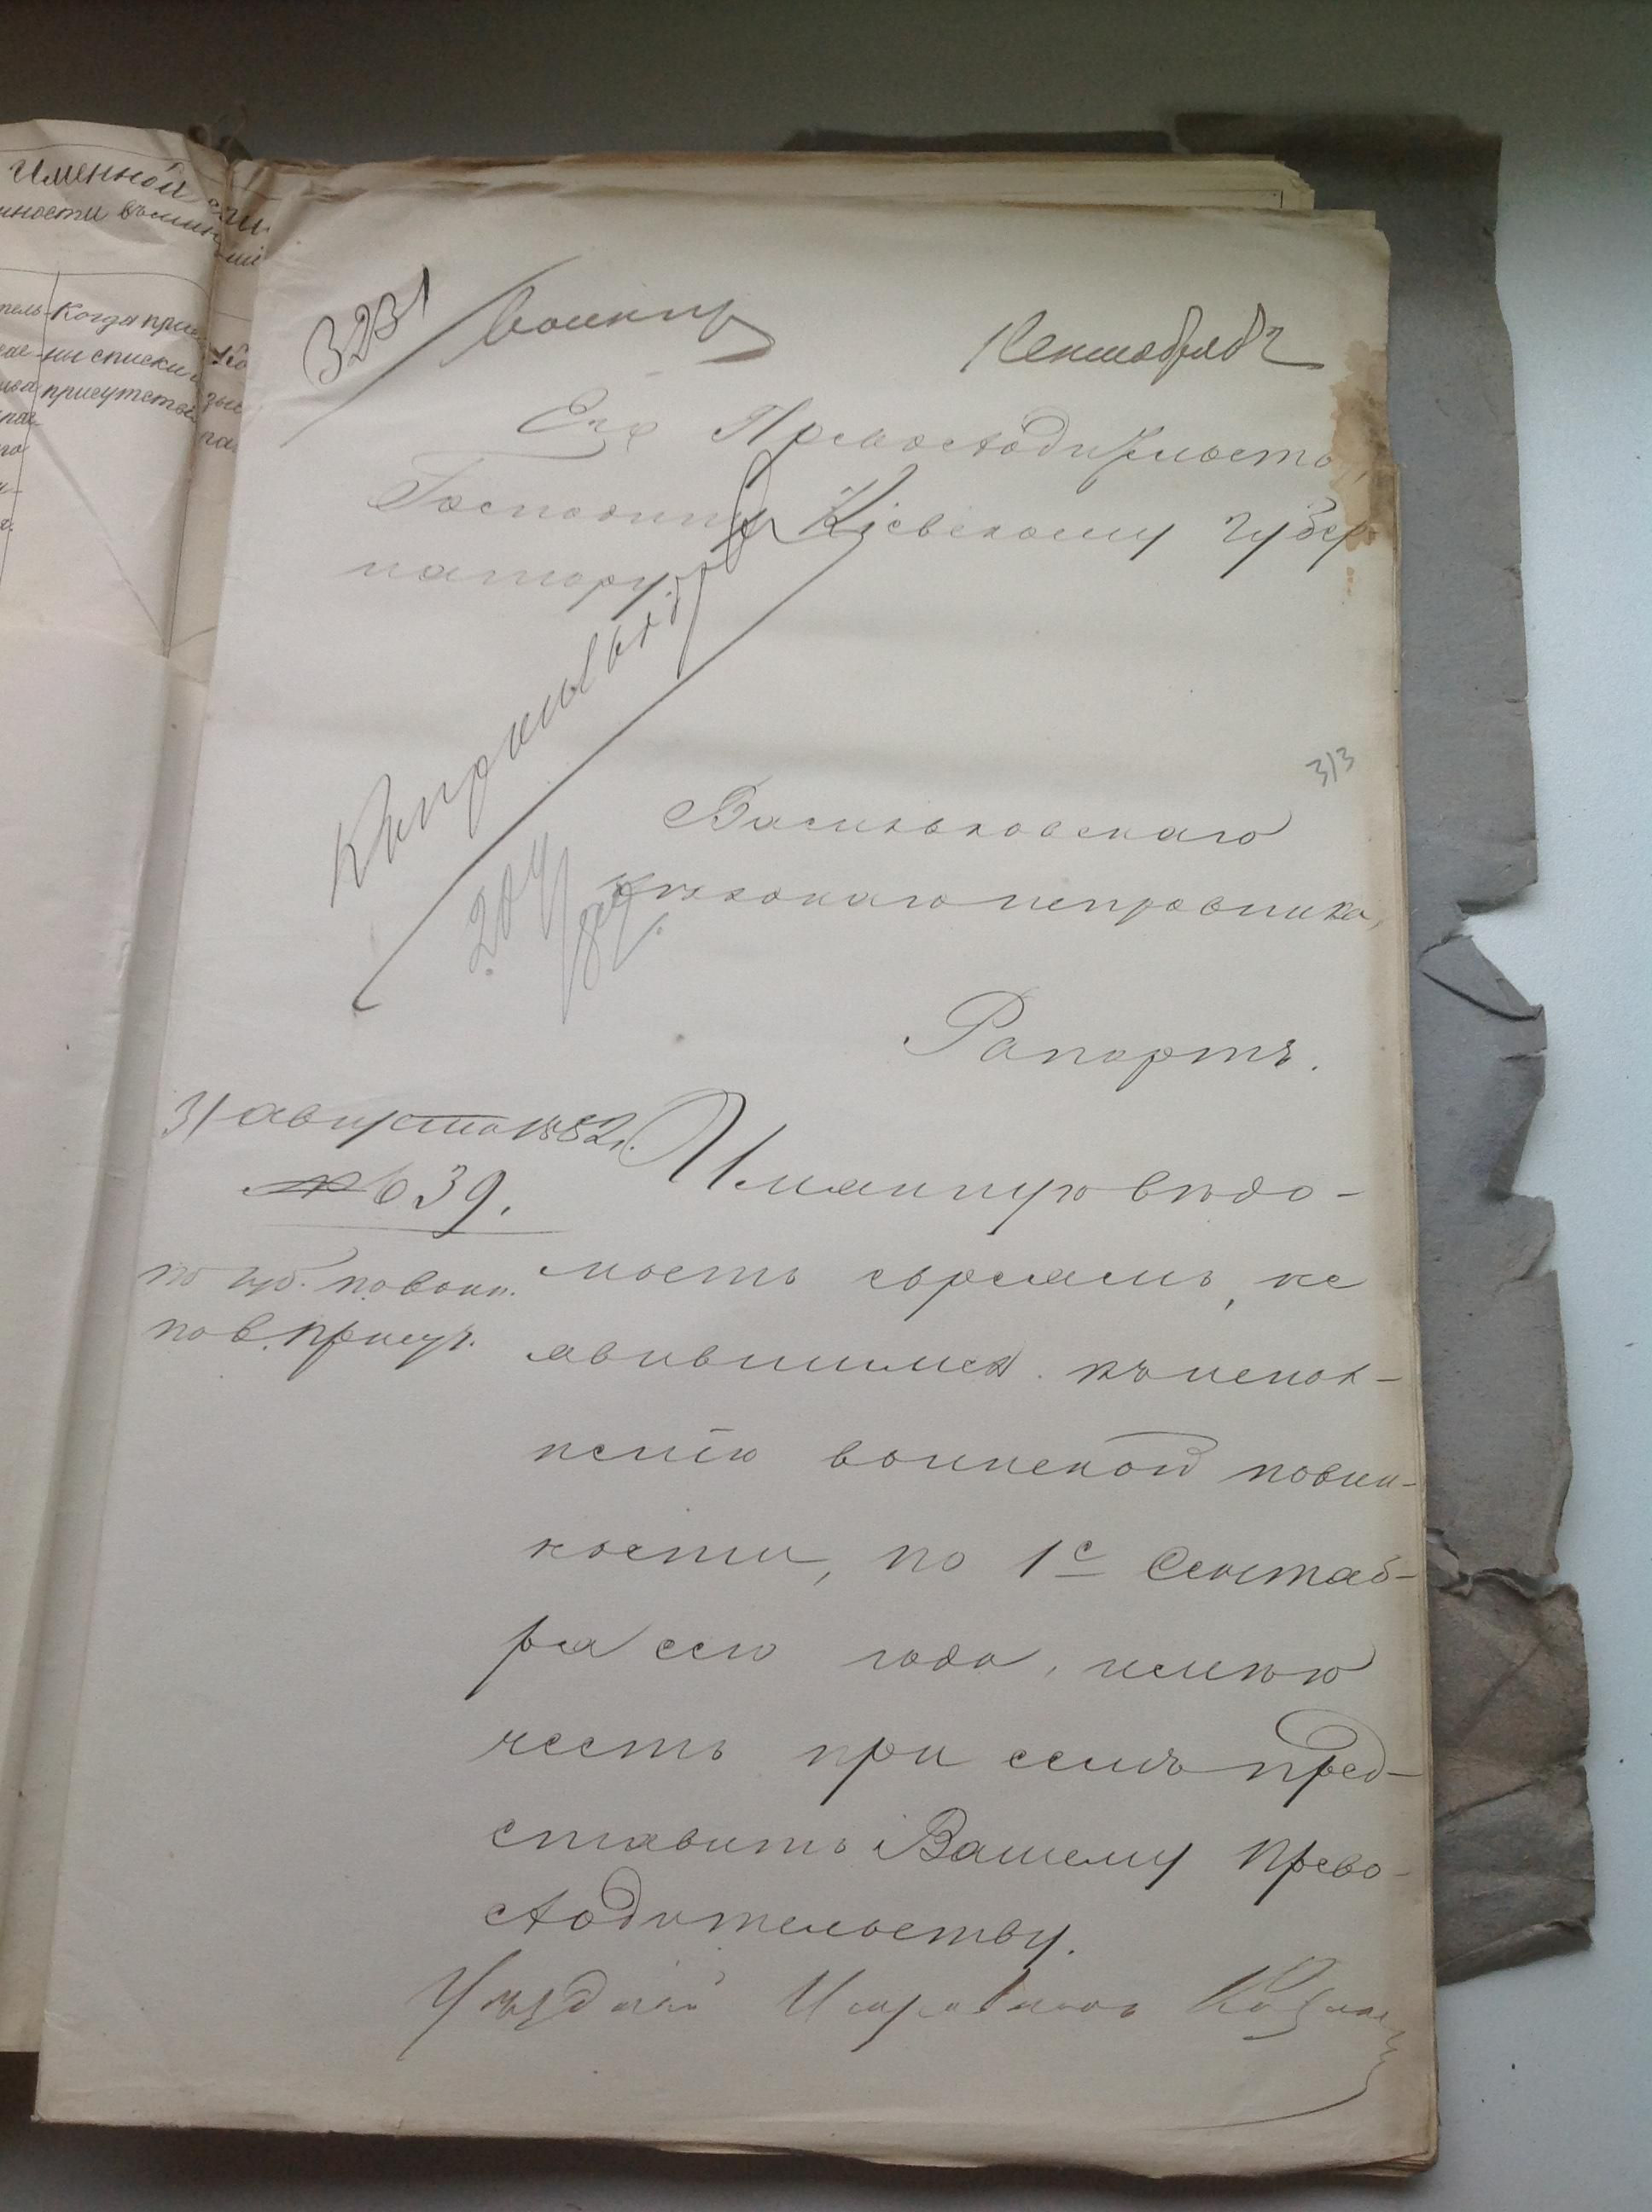 Именной спи
нности въ мин
Когда при
ни списки
присутствi
3231
Сентября 2
Его Превосходительству,
Господину Кіевскому Губер
натору
313
Васильковскаго
уѣзднаго исправника,
Рапортъ.
31 августа 1882 г.
№ 639.
по губ. по воин.
пов. присут.
Именную вѣдо-
мость евреямъ, не
явившимся къ испол-
ненію воинской повин-
ности, по 1е Сентяб-
ря сего года, имѣю
честь при семъ пред-
ставить Вашему Прево-
сходительству.
Уѣздный Исправникъ